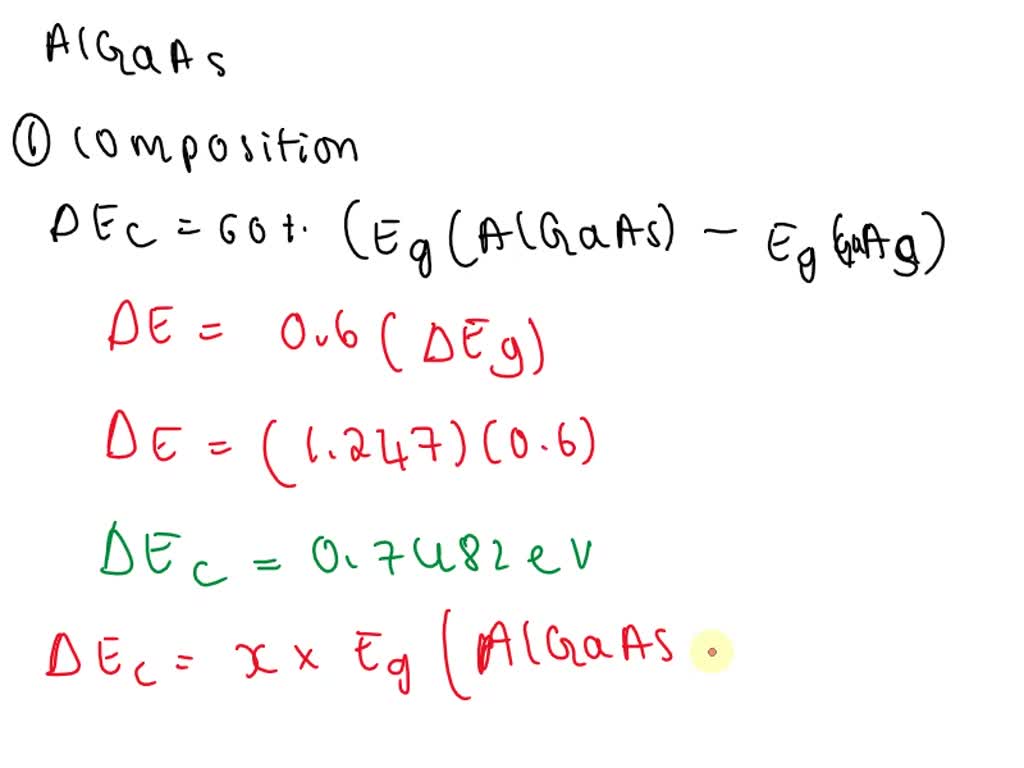 AlGaAs
① Composition
ΔEc = 60% (Eg(AlGaAs) - Eg(GaAs)
ΔE = 0.6 (ΔEg)
ΔE = (1.247)(0.6)
ΔEc = 0.7482 eV
ΔEc = x × Eg (AlGaAs